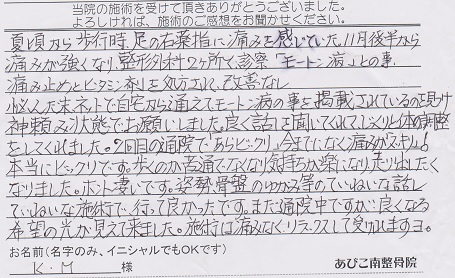 当院の施術を受けて頂きありがとうございました。
よろしければ、施術のご感想をお聞かせください。
夏頃から歩行時、足の右薬指に痛みを感じていた。11月後半から
痛みが強くなり、整形外科2ヶ所で、診察「モートン病」との事
痛み止めとビタミン剤を処方され、改善なし
悩んだ末ネットで自宅から通えてモートン病の事を掲載されているのを見け
神頼み状態でお願いしました。良く話を聞いてくれてじっくり体の調整
をしてくれました。2回目の通院で「あらビックリ」今までになく痛みがスッキリ!
本当にビックリです。歩くのが苦痛でなくなり気持ちが楽になり走り出したく
なりました。ホント凄いです。姿勢、骨盤のゆがみ等のていねいな話し
ていねいな施術で、行って良かったです。まだ通院中ですが良くなる
希望の光が見えて来ました。施術は痛みなくリラックスして受けれますヨ。
お名前(名字のみ、イニシャルでもOKです)
K・M 様
あびこ南整骨院